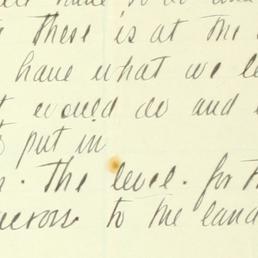 these is at the
have what we le
would do and
put in
. The level. for th
across to the land